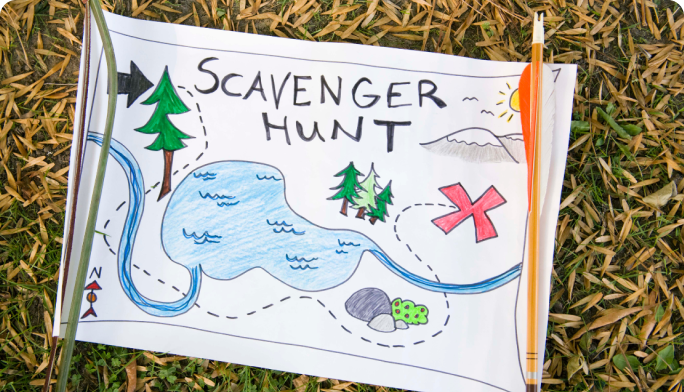 SCAVENGER
HUNT
N